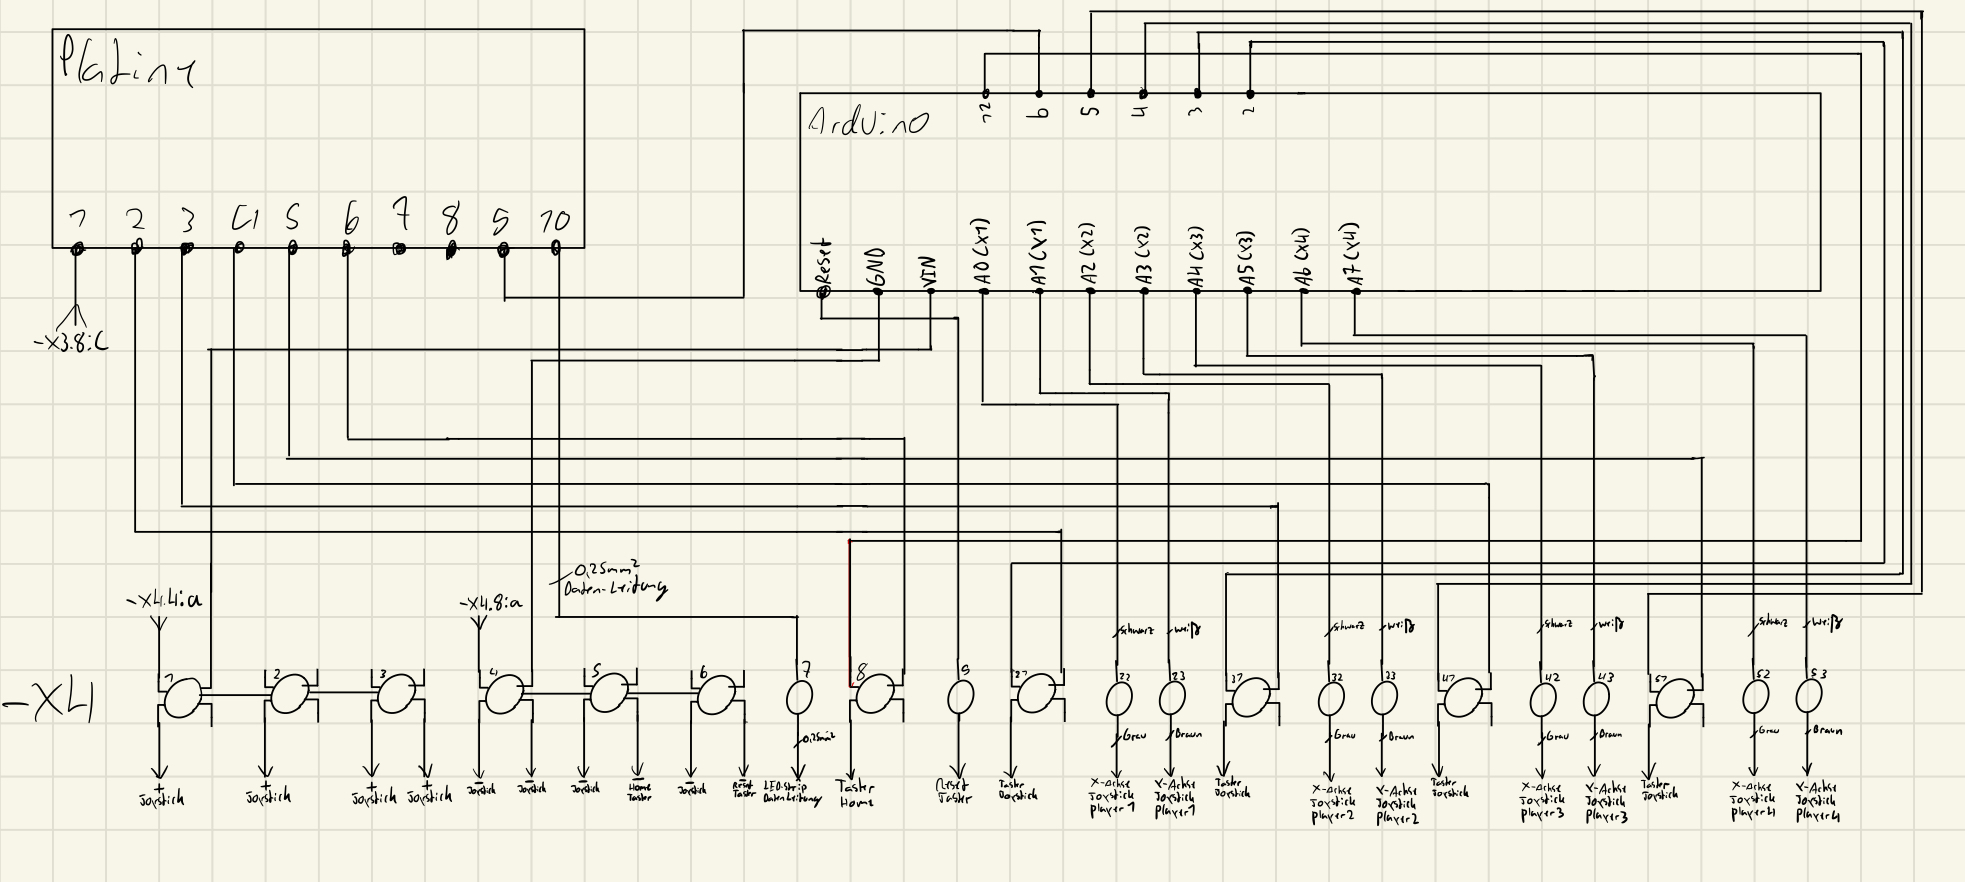 Platine
1 2 3 4 5 6 7 8 9 10
-X3.8:C
Arduino
12 6 5 4 3 2
Reset
GND
VIN
A0(X1)
A1(Y1)
A2(X2)
A3(Y2)
A4(X3)
A5(Y3)
A6(X4)
A7(Y4)
0,25mm²
Daten-Leitung
-X4.4:a
-X4.8:a
Schwarz
weiß
Schwarz
weiß
Schwarz
weiß
Schwarz
weiß
-X4
1 2 3 4 5 6 7 8 9 21 22 23 31 32 33 41 42 43 51 52 53
0,25mm²
Grau
Braun
Grau
Braun
Grau
Braun
Grau
Braun
+
Joystick
+
Joystick
+
Joystick
+
Joystick
-
Joystick
-
Joystick
-
Joystick
-
Home
Taster
-
Joystick
-
Reset
Taster
LED-Strip
Datenleitung
Taster
Home
Reset
Taster
Taster
Joystick
X-Achse
Joystick
Player 1
Y-Achse
Joystick
Player 1
Taster
Joystick
X-Achse
Joystick
Player 2
Y-Achse
Joystick
Player 2
Taster
Joystick
X-Achse
Joystick
Player 3
Y-Achse
Joystick
Player 3
Taster
Joystick
X-Achse
Joystick
Player 4
Y-Achse
Joystick
Player 4